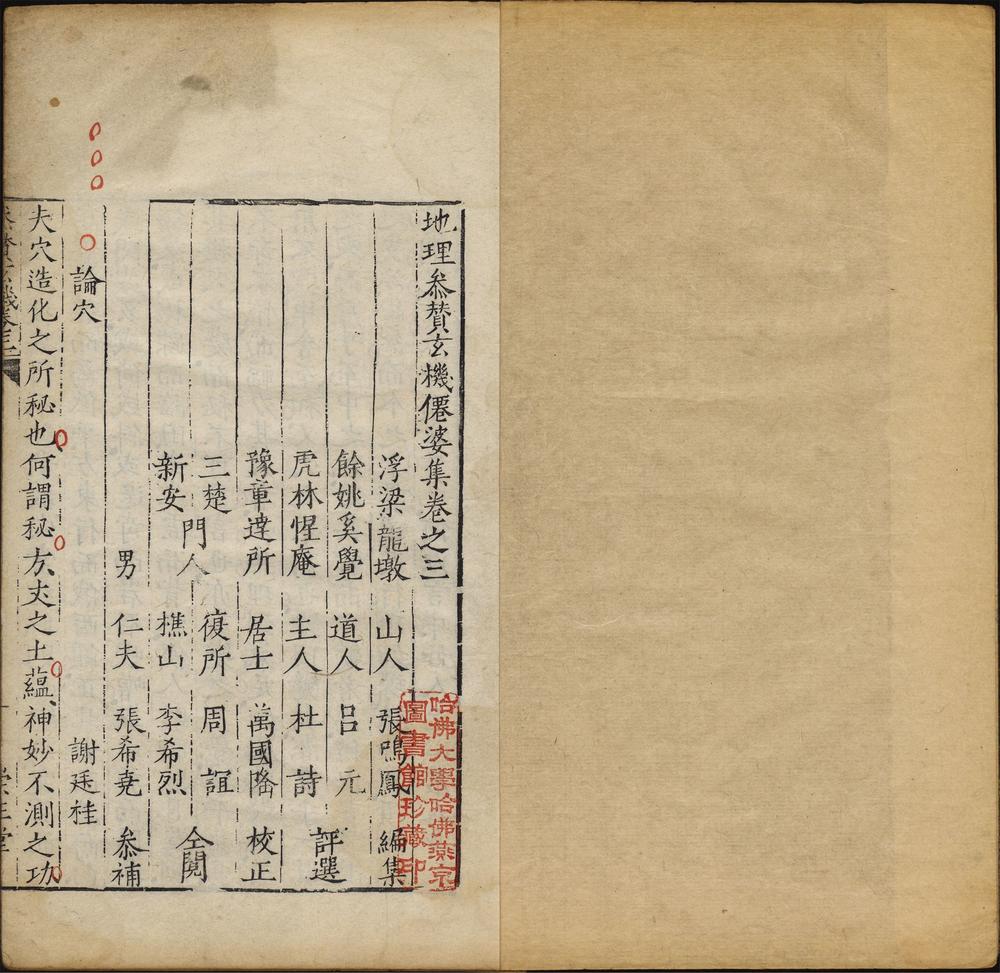 地理叅賛玄機僊婆集卷之三
浮梁龍墩 山人 張鳴鳳 編集
餘姚奚覺 道人 呂元
虎林惺庵 主人 杜詩 評選
豫章達所 居士 萬國隆 校正
三楚 復所 周誼
新安 門人 樵山 李希烈 仝閱
男 仁夫 張希堯 叅補
論穴 謝廷桂
夫穴造化之所秘也何謂秘方丈之土蘊神妙不測之功
哈佛大學哈佛燕京
圖書館珍藏印